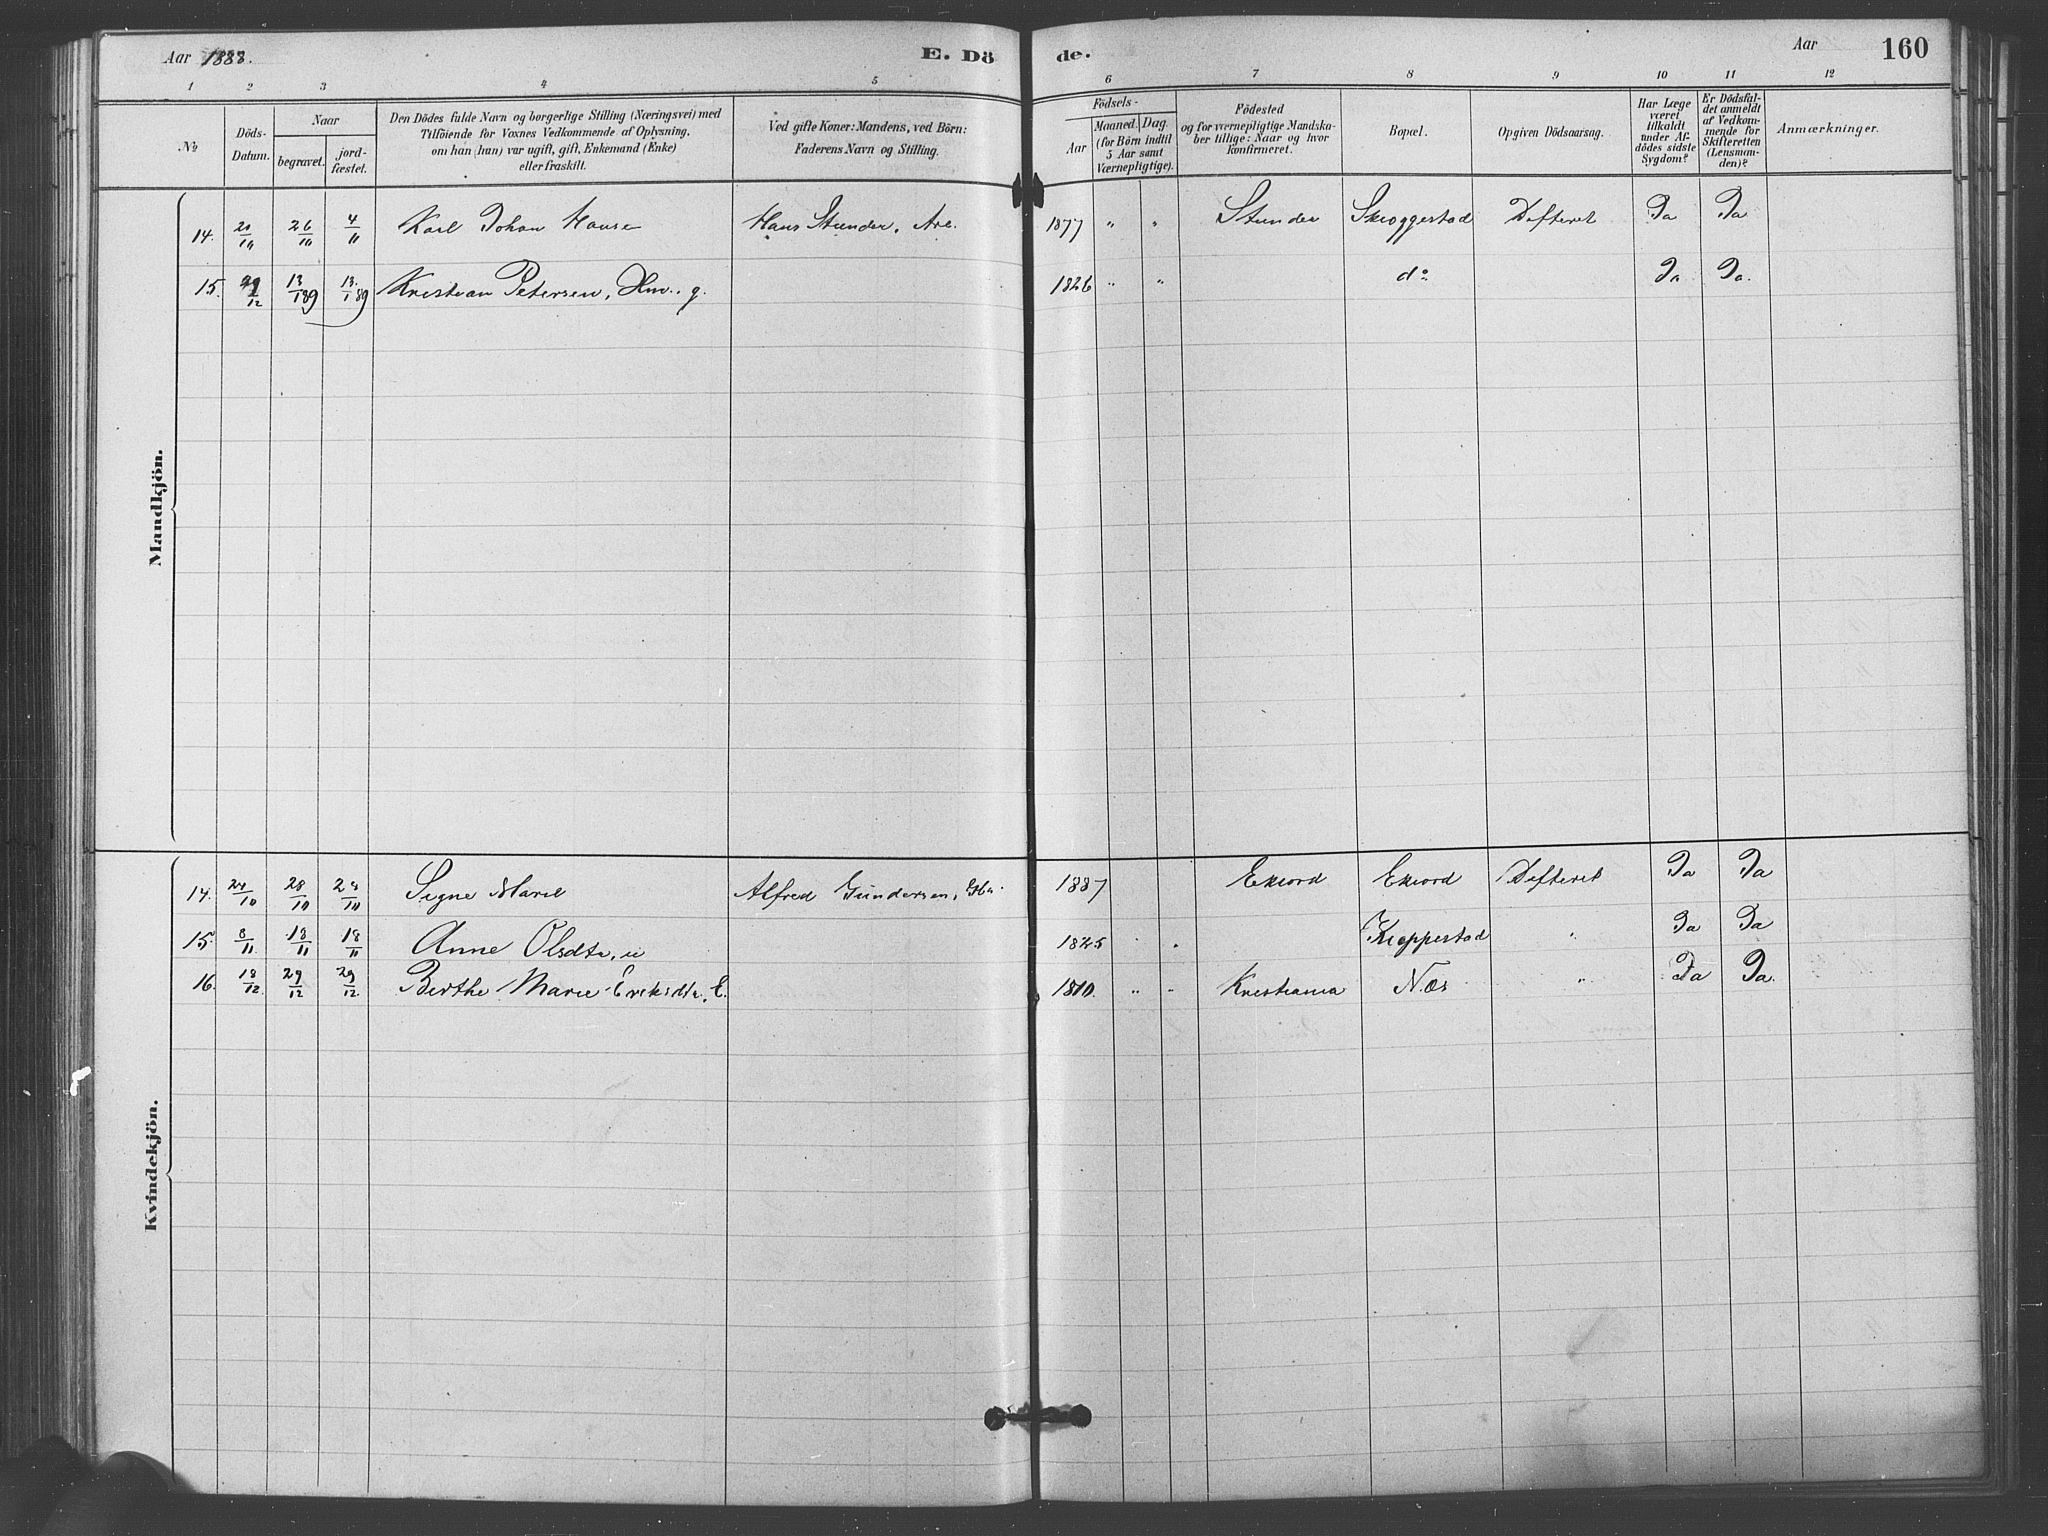 Aar 1888.
E. Dö
de.
Aar
160
1 2 3 4 5 6 7 8 9 10 11 12
No
Döds-Datum.
Naar
begravet.
jord-fæstet.
Den Dödes fulde Navn og borgerlige Stilling (Næringsvei) med
Tilföiende for Voxnes Vedkommende af Oplysning,
om han (hun) var ugift, gift, Enkemand (Enke)
eller fraskilt.
Ved gifte Koner: Mandens, ved Börn:
Faderens Navn og Stilling.
Födsels-
Aar
Maaned. Dag.
(for Börn indtil
5 Aar samt
Værnepligtige).
Födested
og for værnepligtige Mandska-
ber tillige: Naar og hvor
konfirmeret.
Bopæl.
Opgiven Dödsaarsag.
Har Læge
været
tilkaldt
under Af-
dödes sidste
Sygdom?
Er Dödsfal-
det anmeldt
af Vedkom-
mende for
Skifteretten
(Lensman-
den)?
Anmærkninger.
Mandkjön.
14. 26/10 4/11 Karl Johan Hansen Hans Stunder, Arb. 1877 " " Stunder Skroggestad Difterit Ja Ja
15. 13/1 89 13/1 89 Kristian Petersen, Hm. g. 1826 " " do Ja Ja.
Kvindekjön.
14. 24/10 28/10 28/10 Signe Marie Alfred Gundersen, 1887 Ekeord Ekeord Difterit Ja Ja
15. 8/11 18/11 18/11 Anne Olsdtr, u 1825 " " Kroppestad " Ja Ja
16. 18/12 29/12 29/12 Berthe Marie Eriksdtr, E. 1810. " " Kristiania Næs " Ja Ja.